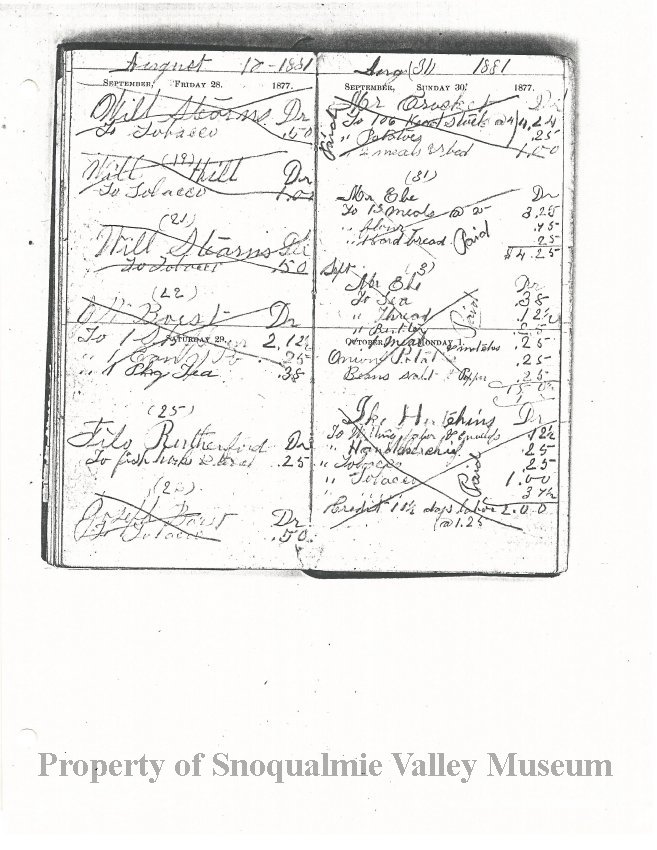 August 17-1881
SEPTEMBER, FRIDAY 28. 1877.
Will Stearns Dr
To Tobacco .50
(19)
Will Hill Dr
To Tobacco 1.00
(21)
Will Stearns Dr
To Tobacco .50
(22)
Borst Dr
To 1 2.12½
SATURDAY 29.
" 1 Can .25
" 1 Pkg Tea .38
(25)
Filo Rutherford Dr
To fish hooks .25
Joseph Borst Dr
To Tobacco .50
Aug (31) 1881
SEPTEMBER, SUNDAY 30. 1877.
Mr Dr
Paid
To 106 @ 4 4.24
" Potatoes .25
2 meals & bed 1.00
(31)
Mr Ebe Dr
To 13 meals @ 25 3.25
" flour .75
" bread .25
Paid
$4.25
Sept (3)
Mr Ebe Dr
To Tea .38
" Thread .12½
"
Paid
OCTOBER, MONDAY 1.
Meat matches .25
Onions Potat .25
Beans salt Pepper .25
Ike Hutchins Dr
To 12½
" Handkerchief .25
" Tobacco .25
" Tobacco 1.00
" 37½
Paid
Credit 1 days labor 2.00
@ 1.25
Property of Snoqualmie Valley Museum